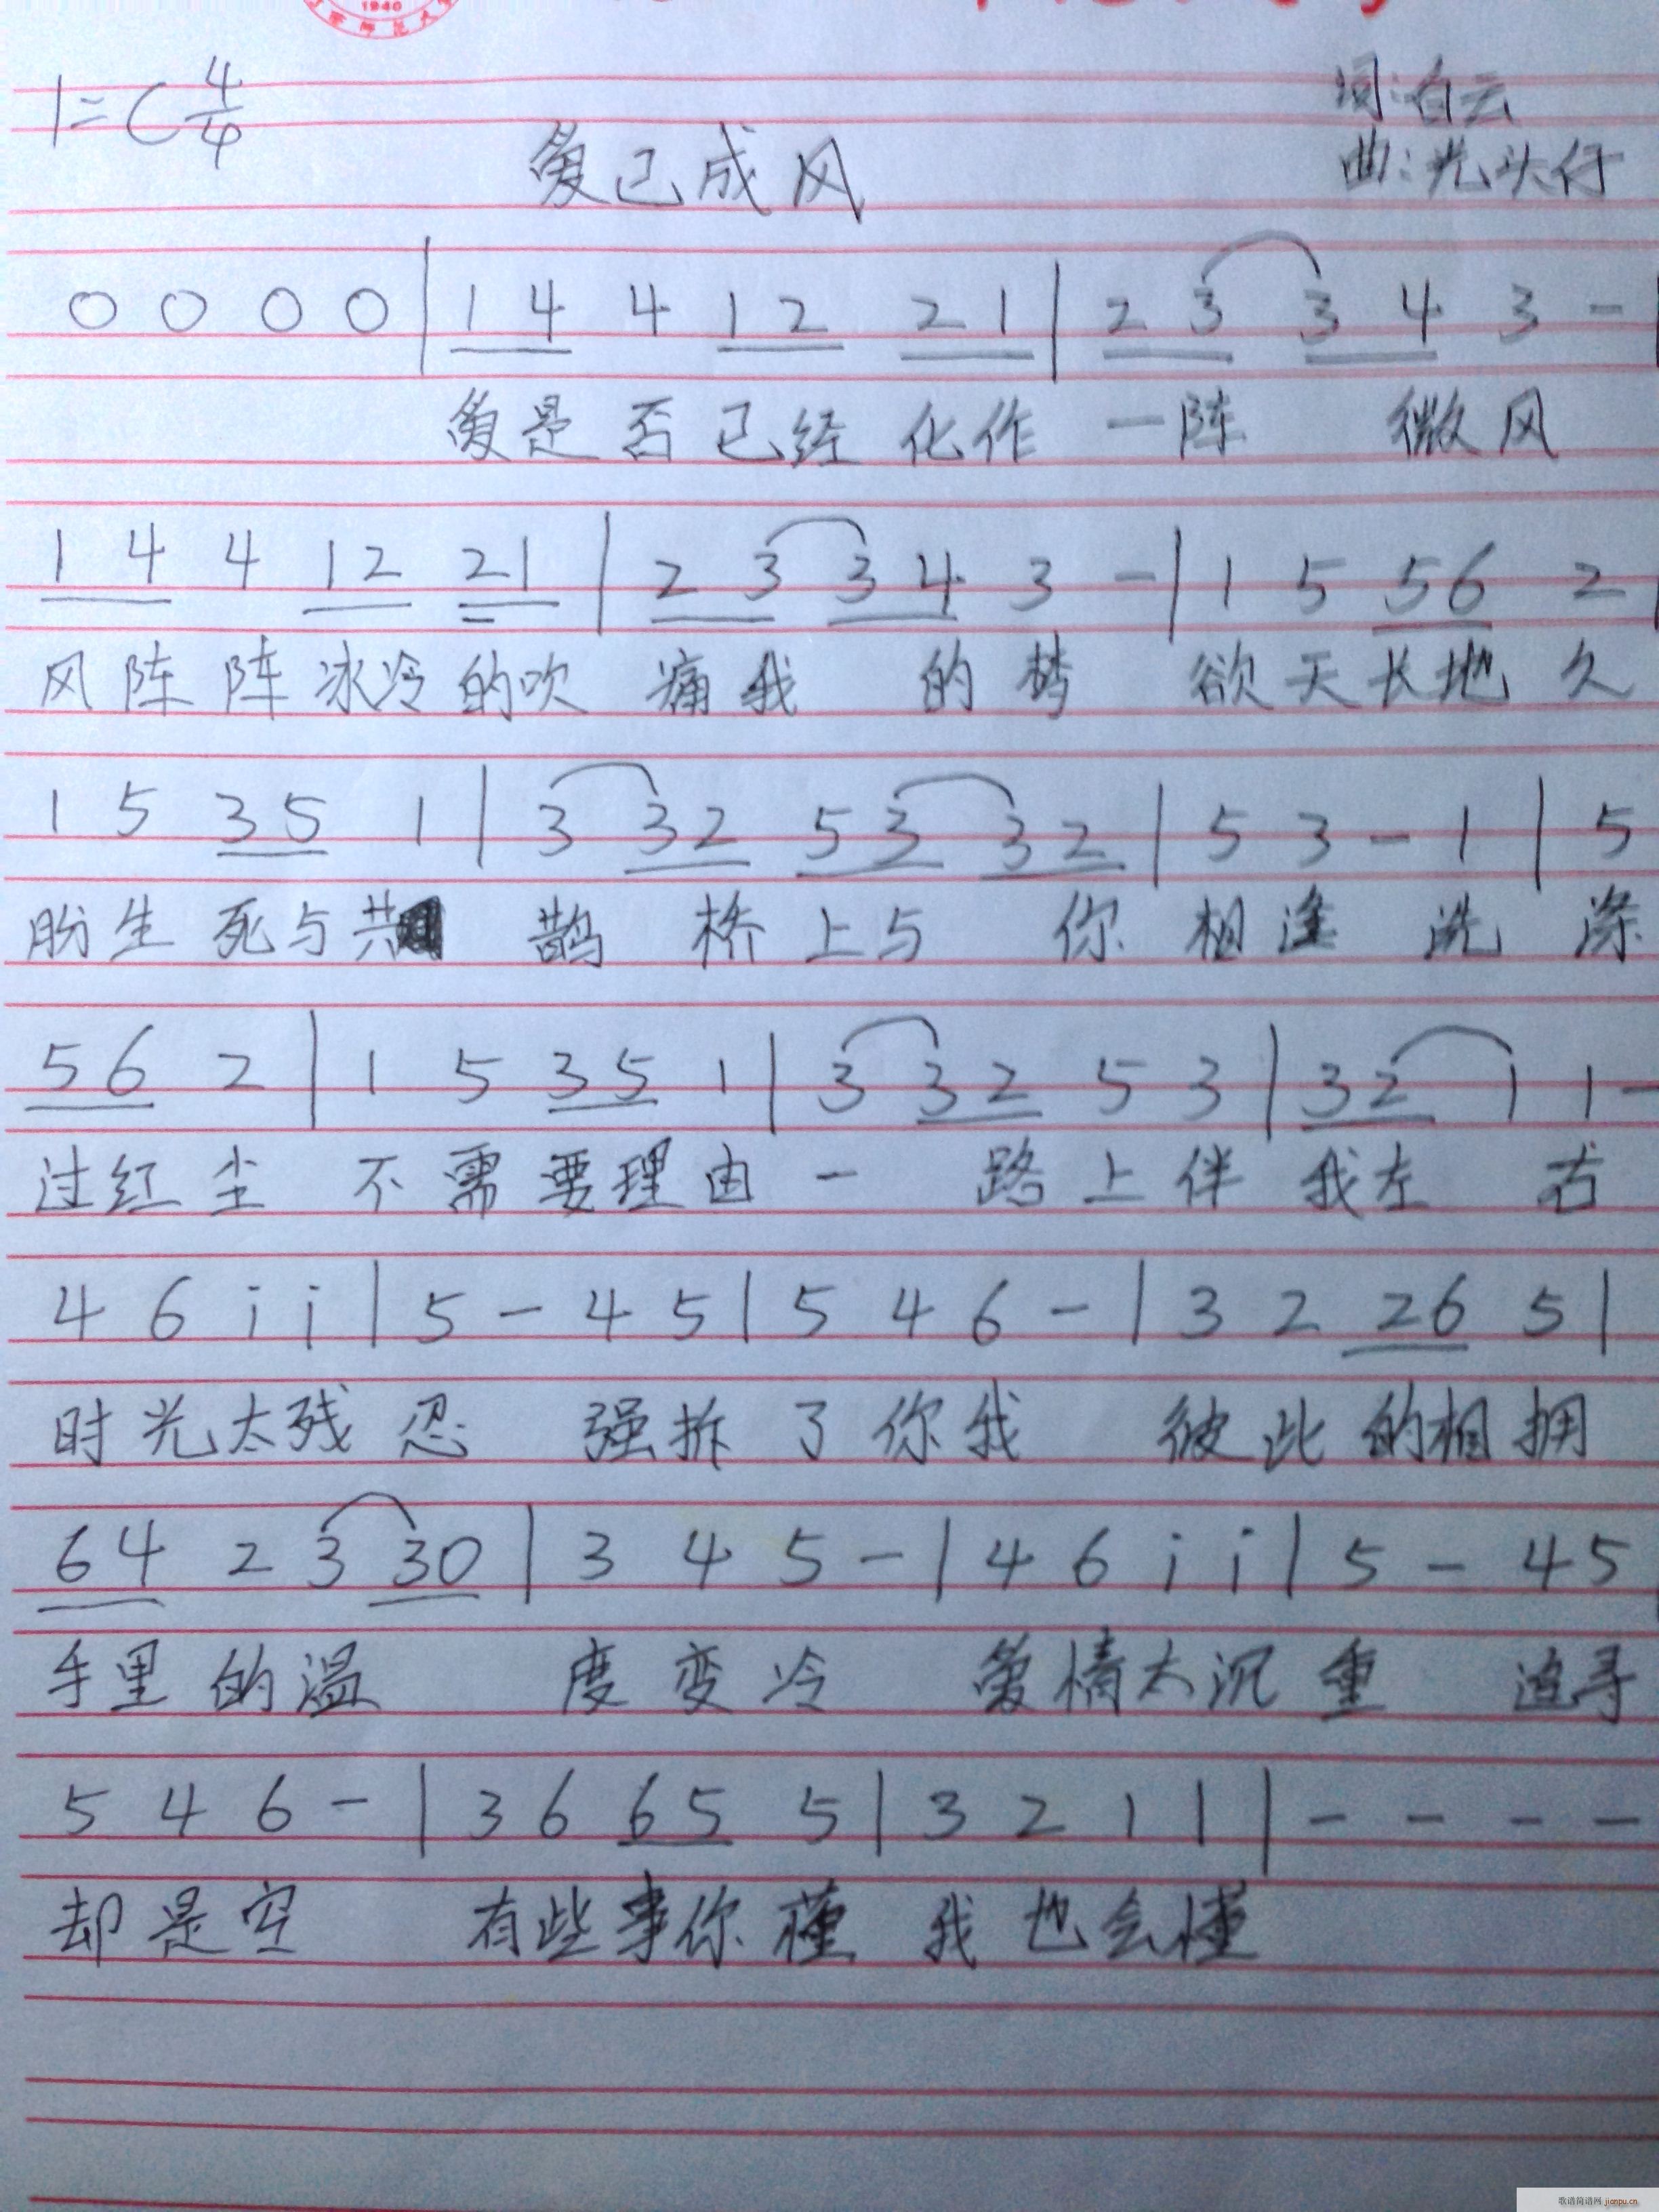 1940
1=C 4/4
词:白云
爱已成风
曲:光头仔
0 0 0 0 | 1 4 4 1 2 2 1 | 2 3 3 4 3 - |
爱是否已经化作一阵 微风
1 4 4 1 2 2 1 | 2 3 3 4 3 - | 1 5 5 6 2 |
风阵阵冰冷的吹 痛我 的梦 欲天长地久
1 5 3 5 1 | 3 3 2 5 3 3 2 | 5 3 - 1 | 5
盼生死与共 鹊 桥上与 你 相逢 洗涤
5 6 2 | 1 5 3 5 1 | 3 3 2 5 3 | 3 2 1 1 -
过红尘 不需要理由 一 路上伴 我左 右
4 6 i i | 5 - 4 5 | 5 4 6 - | 3 2 2 6 5 |
时光太残忍 强拆了你我 彼此的相拥
6 4 2 3 3 0 | 3 4 5 - | 4 6 i i | 5 - 4 5
手里的温 度变冷 爱情太沉重 追寻
5 4 6 - | 3 6 6 5 5 | 3 2 1 1 | - - - -
却是空 有些事你懂 我也会懂
歌谱简谱网 jianpu.cn